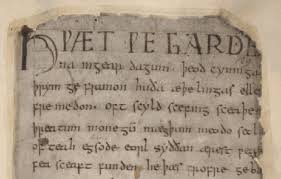 HǷÆT ǷE GARDE
na ingear dagum. þeod cyninga
þrym ge frunon huða æþelingas elle
fremedon. oft scyld scefing sceaþe
þreatum monegū mægþum meodo setl
of teah egsode eorl syððan ærest ƿear
fea sceaft funden he þæs frofre geb